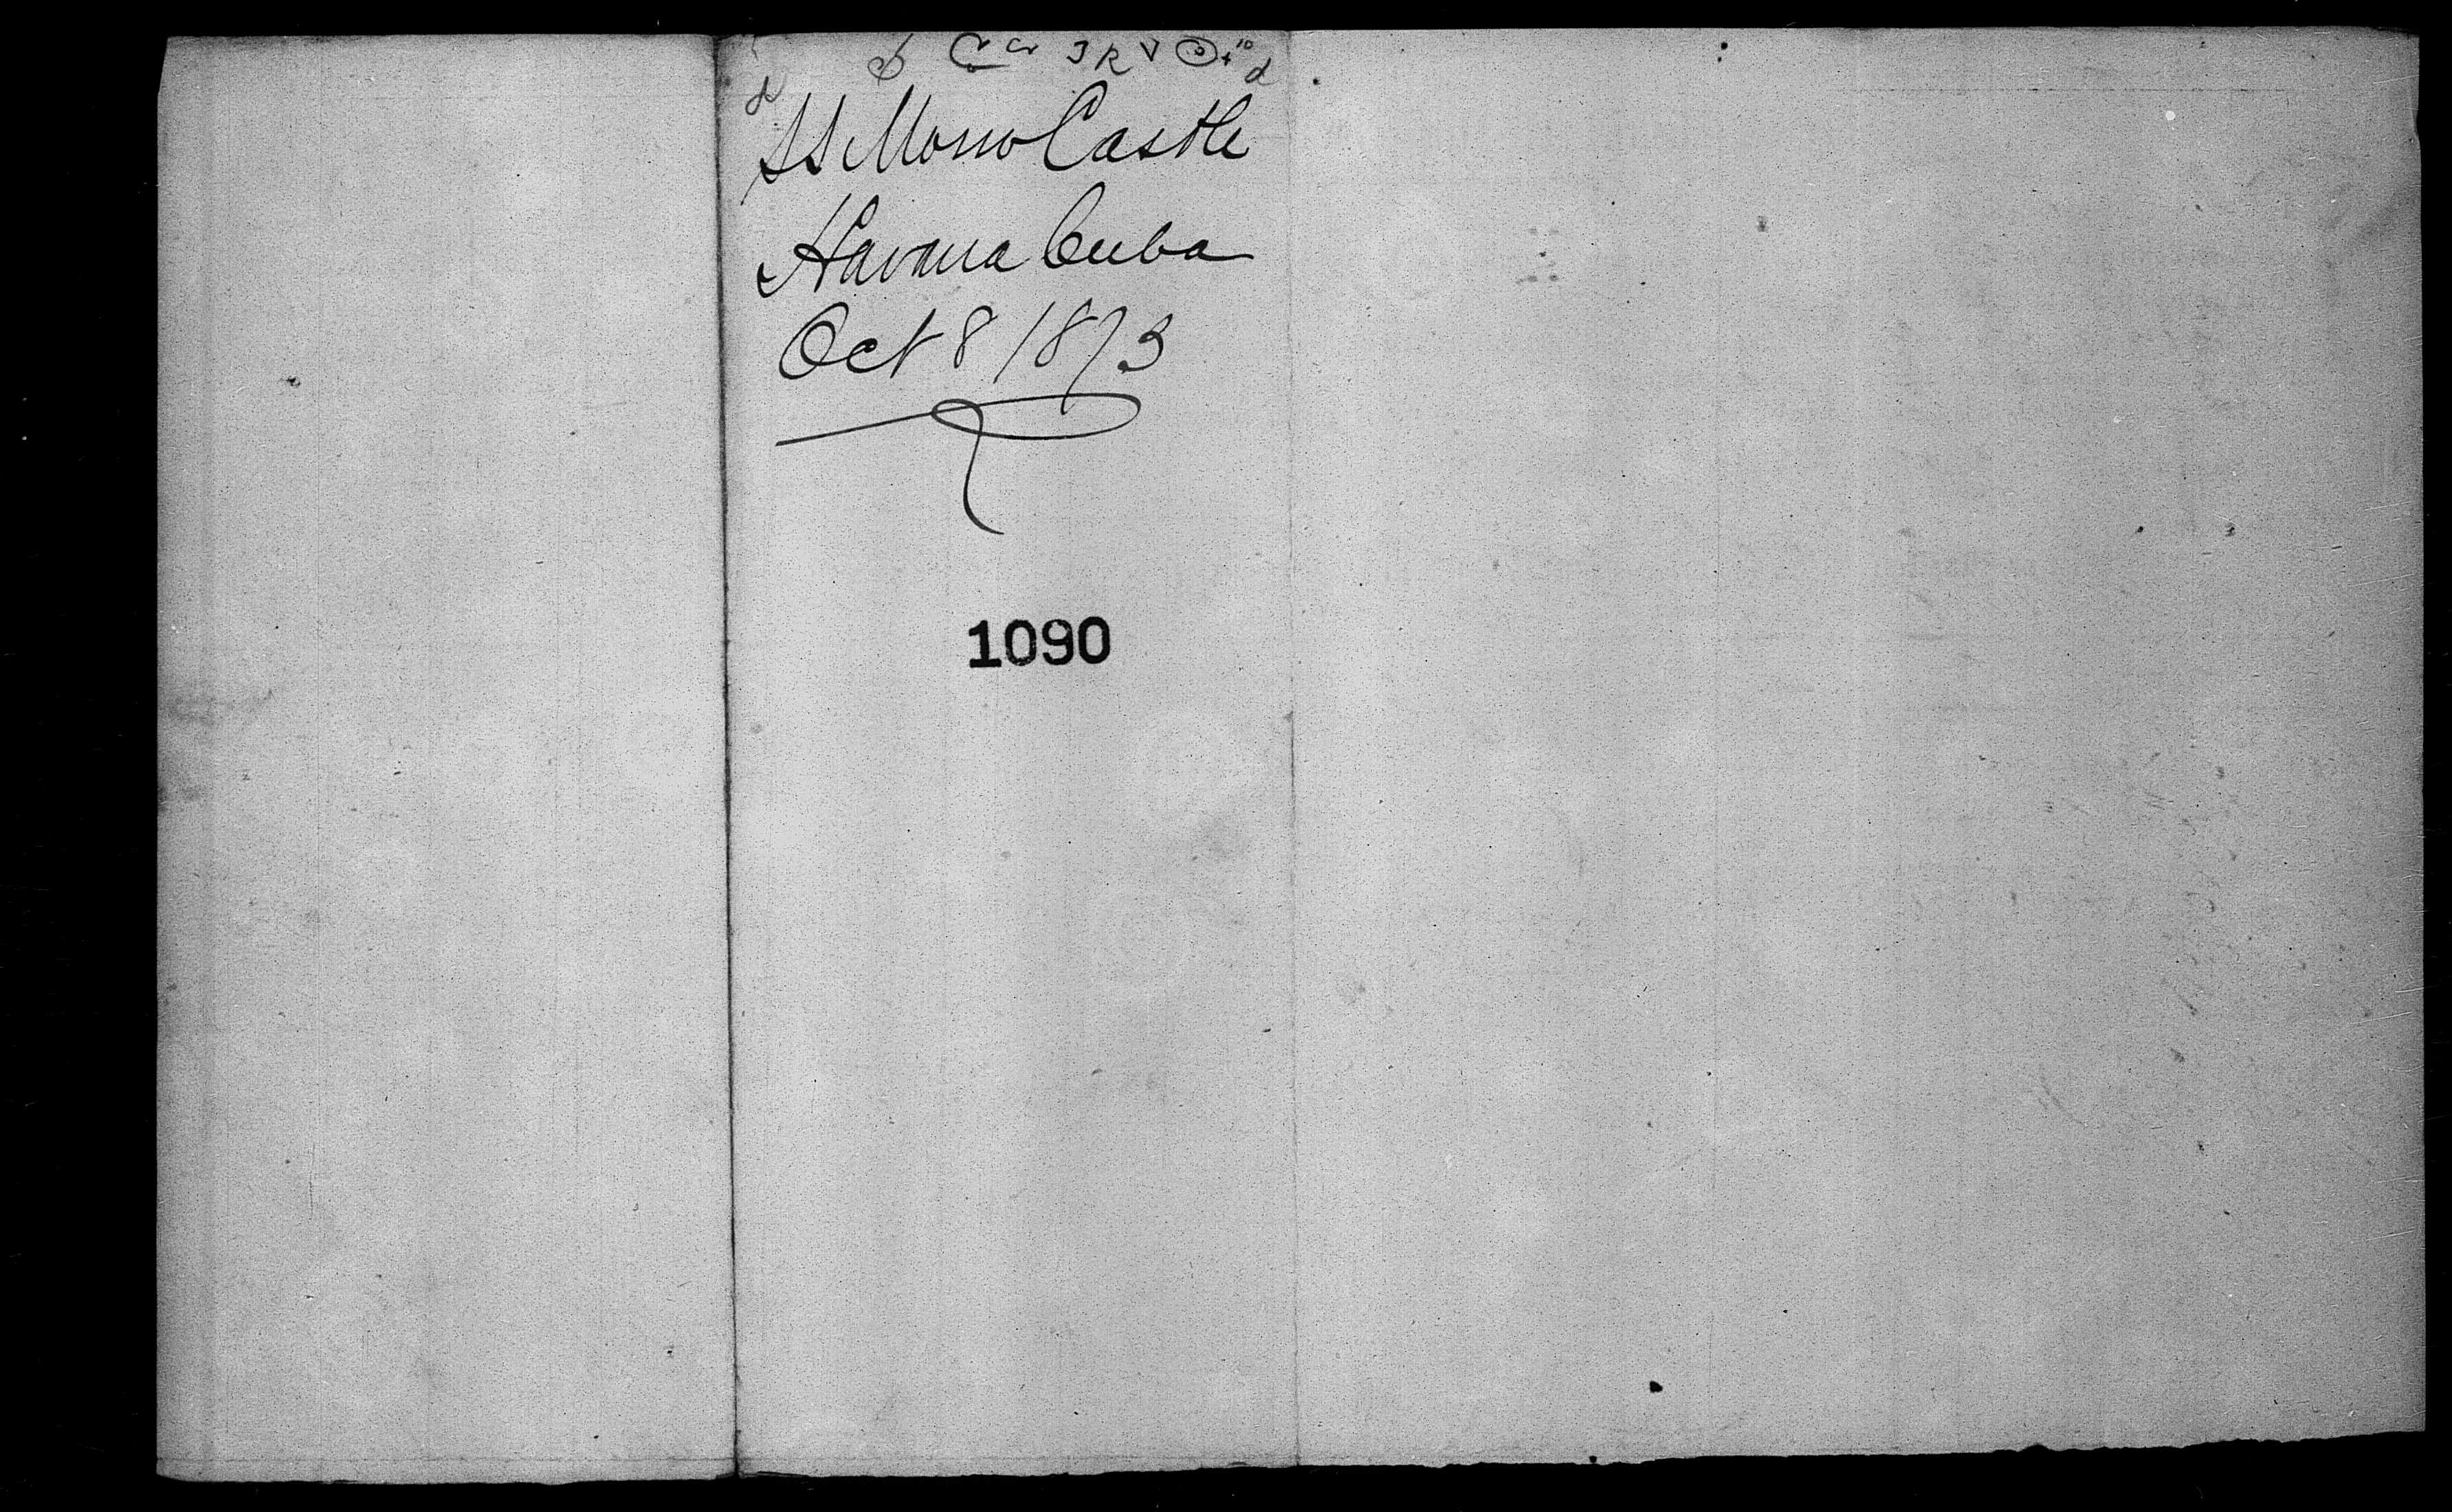 SS Morro Castle
Havana Cuba
Oct 8 1873
1090